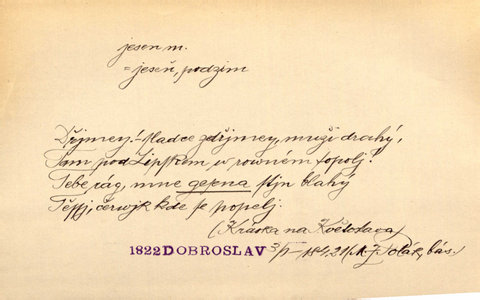 jesen m.
= jeseň, podzim
Dřjmey! – sladce zdřjmey, muži drahý,
Tam pod Lipskem w rowném topolj!
Tebe rág, mne gesena stjn blahý
Těssj, čerwjk kde se popelj.
(Kráska na Květoslava)
1822 DOBROSLAV 3/I – 184, 21 (M. Z. Polák, bás.)